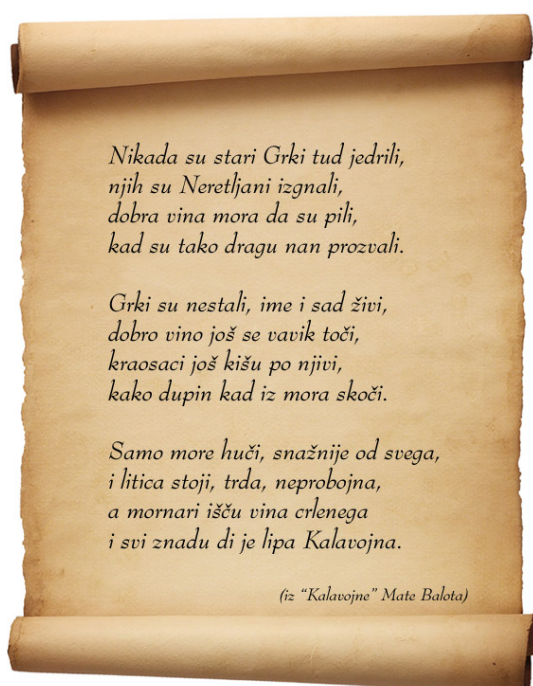 Nikada su stari Grki tud jedrili,
njih su Neretljani izgnali,
dobra vina mora da su pili,
kad su tako dragu nan prozvali.
Grki su nestali, ime i sad živi,
dobro vino još se vavik toči,
kraosaci još kišu po njivi,
kako dupin kad iz mora skoči.
Samo more huči, snažnije od svega,
i litica stoji, trda, neprobojna,
a mornari išču vina crlenega
i svi znadu di je lipa Kalavojna.
(iz “Kalavojne” Mate Balota)